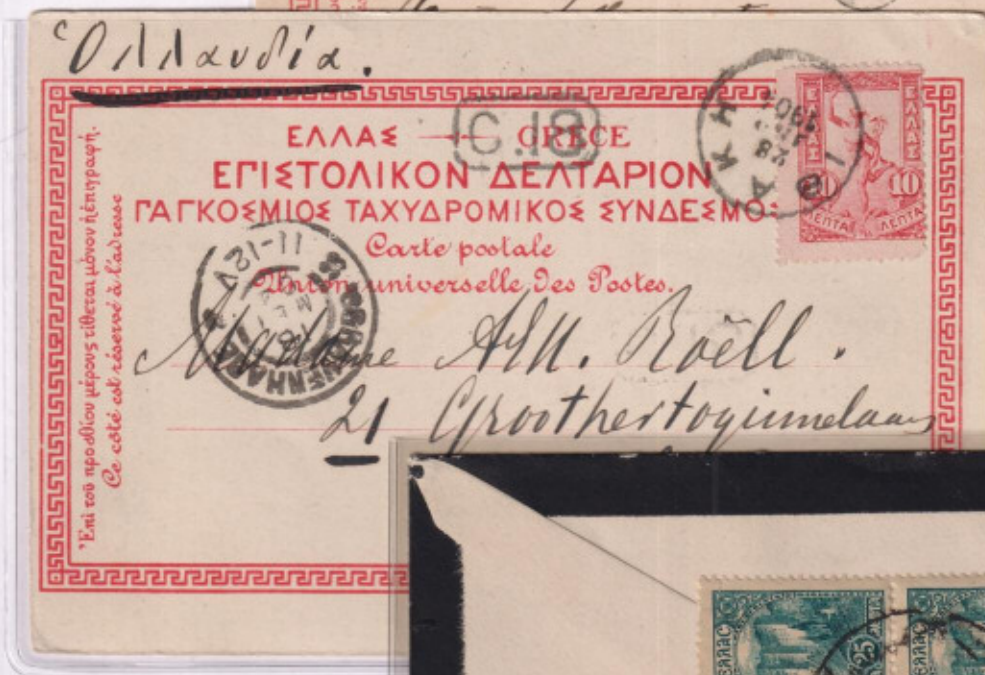 Ὁλλανδία.
ΕΛΛΑΣ — GRÈCE
C.10
ΕΠΙΣΤΟΛΙΚΟΝ ΔΕΛΤΑΡΙΟΝ
ΠΑΓΚΟΣΜΙΟΣ ΤΑΧΥΔΡΟΜΙΚΟΣ ΣΥΝΔΕΣΜΟΣ
Carte postale
Union universelle des Postes.
Ἐπὶ τοῦ προσθίου μέρους τίθεται μόνον ἡ ἐπιγραφή.
Ce côté est réservé à l'adresse
ΙΘΑΚΗ
28
ΕΛΛΑΣ
ΕΛΛΑΣ
10
10
ΛΕΠΤΑ
ΛΕΠΤΑ
11-12V
Madame
Roëll.
21 Groothertoginnelaan
ΕΛΛΑΣ
25
ΛΕΠΤΑ
ΕΛΛΑΣ